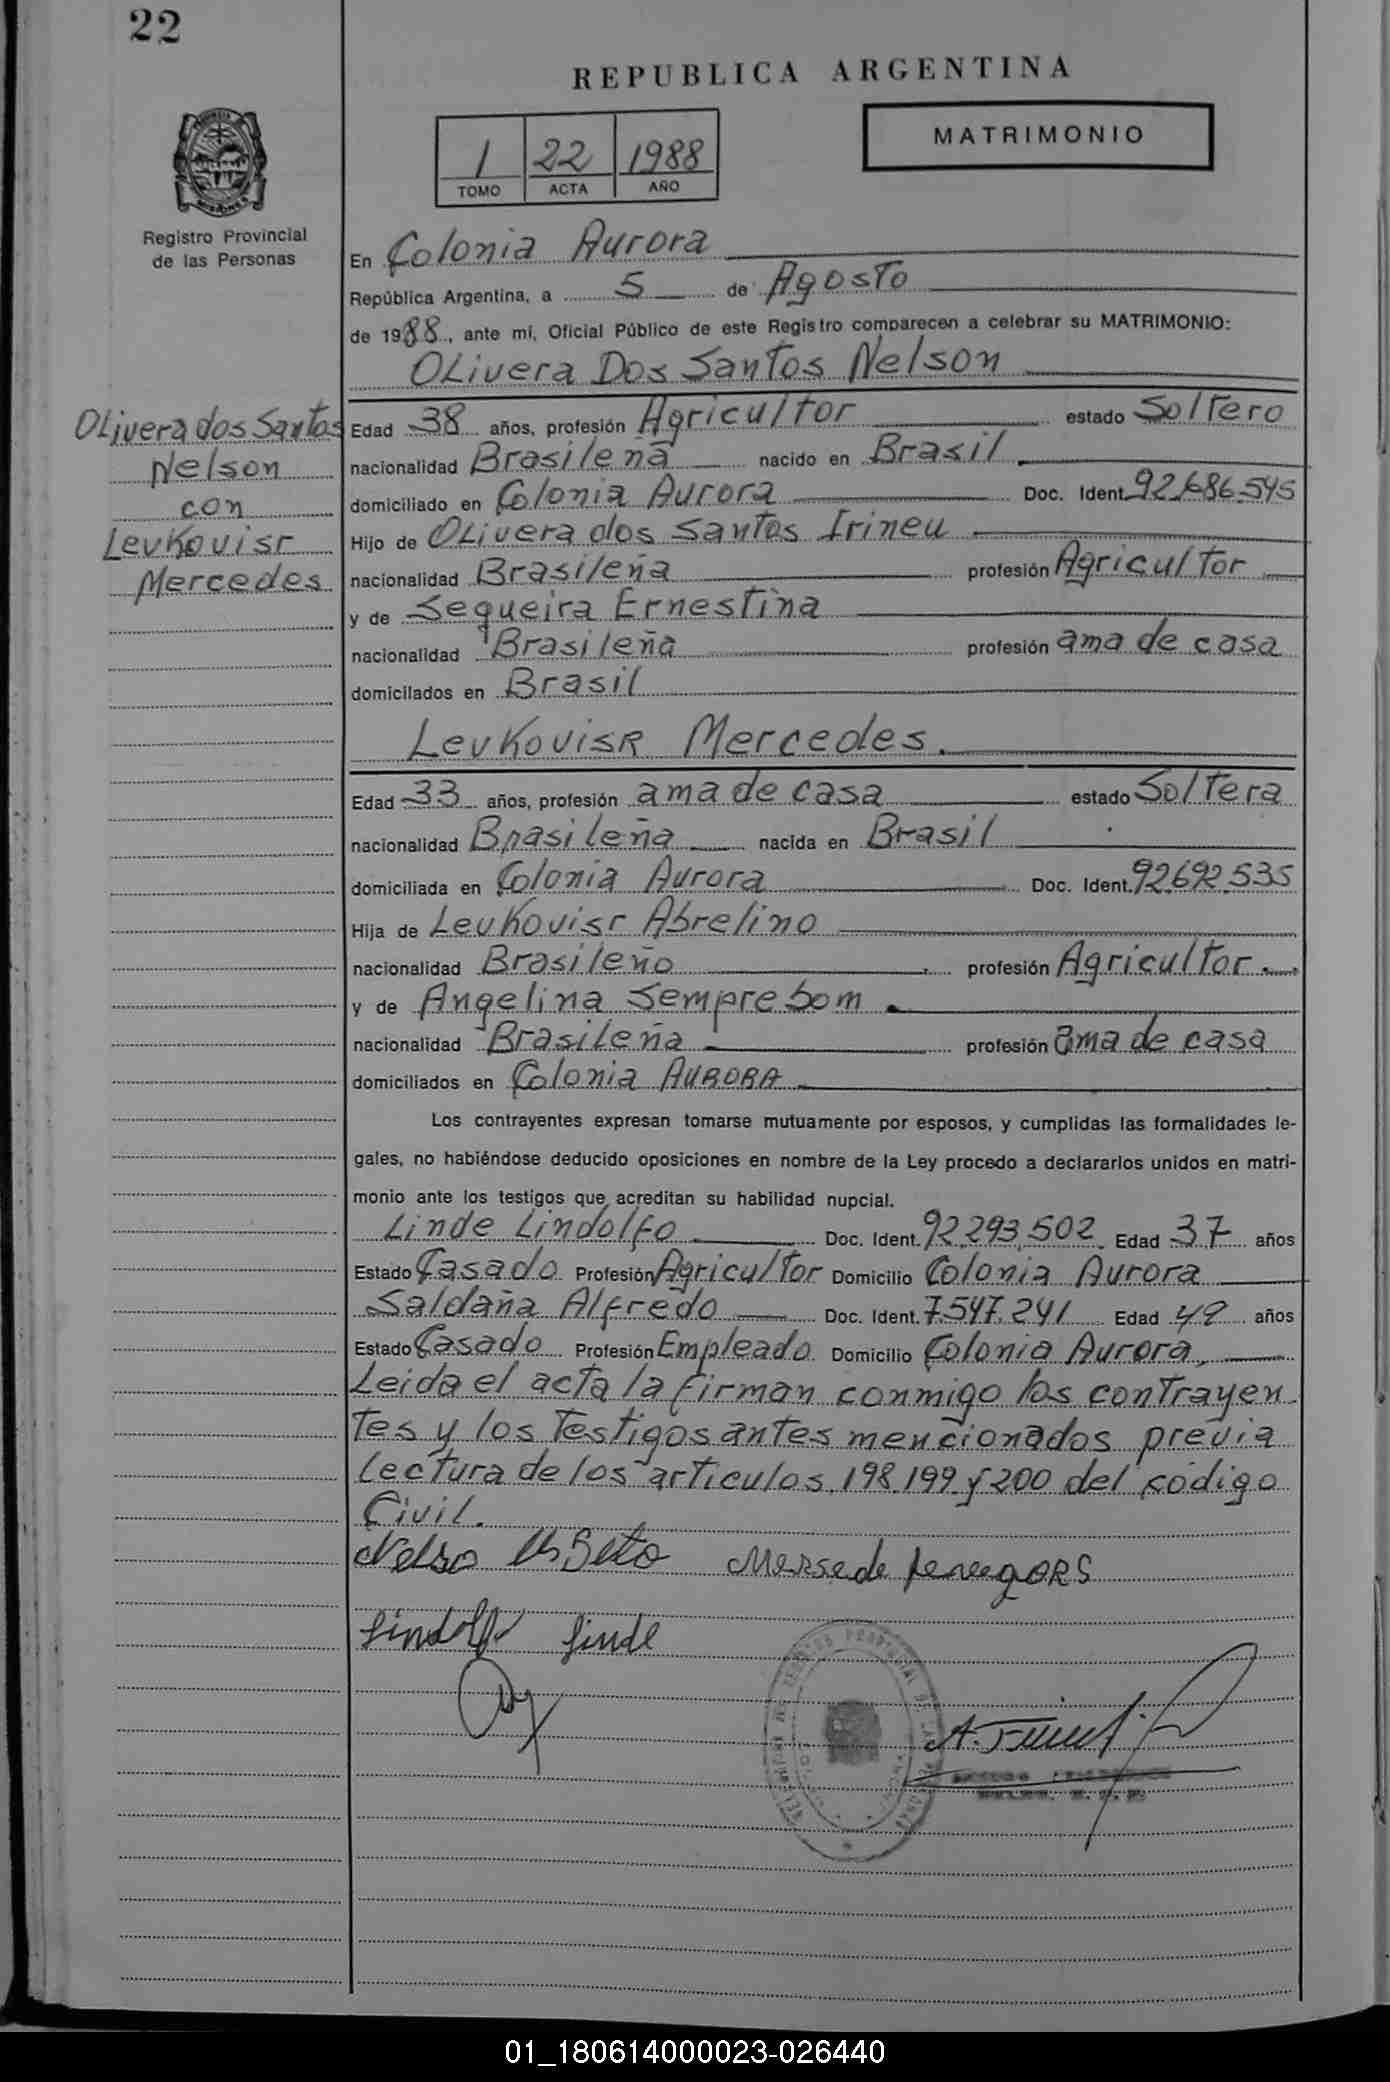 22
REPUBLICA ARGENTINA
MATRIMONIO
1 22 1988
TOMO ACTA AÑO
Registro Provincial
de las Personas
En Colonia Aurora
República Argentina, a 5 de Agosto
de 1988, ante mí, Oficial Público de este Registro comparecen a celebrar su MATRIMONIO:
OLivera Dos Santos Nelson
OLivera dos Santos
Nelson
con
Levkovisr
Mercedes
Edad 38 años, profesión Agricultor estado Soltero
nacionalidad Brasileña nacido en Brasil
domiciliado en Colonia Aurora Doc. Ident. 92.686.545
Hijo de OLivera dos Santos Irineu
nacionalidad Brasileña profesión Agricultor
y de Sequeira Ernestina
nacionalidad Brasileña profesión ama de casa
domicilados en Brasil
LevKovisR Mercedes.
Edad 33 años, profesión ama de casa estado Soltera
nacionalidad Brasileña nacida en Brasil
domiciliada en Colonia Aurora Doc. Ident. 92.692.535
Hija de Levkovisr Abrelino
nacionalidad Brasileño profesión Agricultor.
y de Angelina Semprebom
nacionalidad Brasileña profesión ama de casa
domiciliados en Colonia AURORA
Los contrayentes expresan tomarse mutuamente por esposos, y cumplidas las formalidades le-
gales, no habiéndose deducido oposiciones en nombre de la Ley procedo a declararlos unidos en matri-
monio ante los testigos que acreditan su habilidad nupcial.
Linde Lindolfo Doc. Ident. 92.293.502 Edad 37 años
Estado Casado Profesión Agricultor Domicilio Colonia Aurora
Saldaña Alfredo Doc. Ident. 7.547.241 Edad 49 años
Estado Casado Profesión Empleado Domicilio Colonia Aurora,
Leida el acta la firman conmigo los contrayen
tes y los Testigos antes mencionados previa
Lectura de los articulos 198.199 y 200 del código
Civil.
Lindolfo Linde
01_180614000023-026440